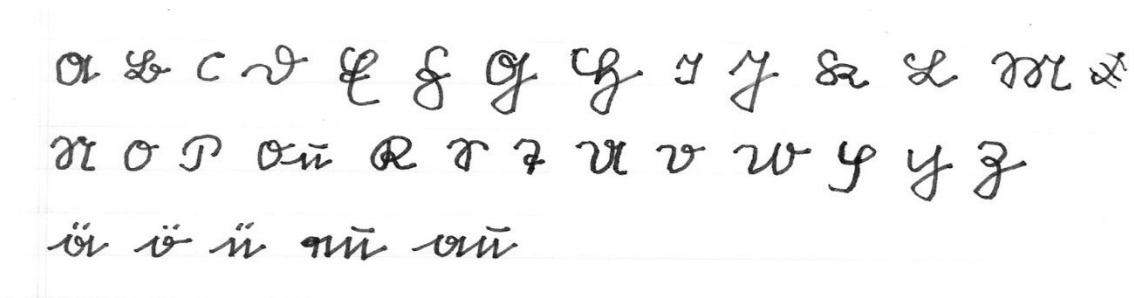 A B C D E F G H I J K L M
N O P Qu R S T U V W X Y Z
ä ö ü nu au